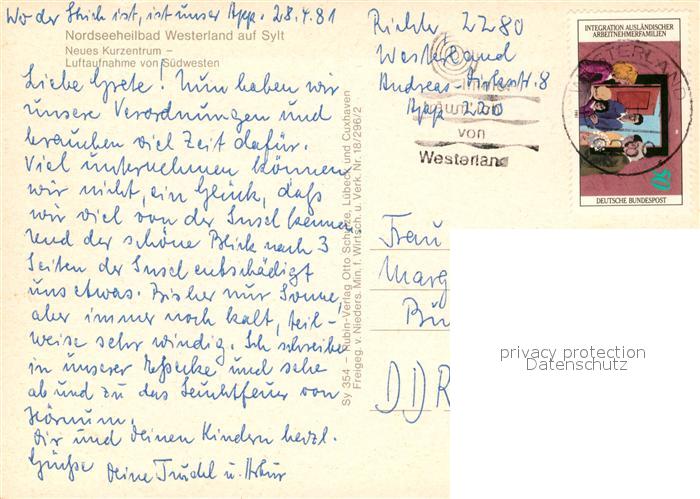 Wo der Strich ist, ist unser App. 28.4.81
Nordseeheilbad Westerland auf Sylt
Neues Kurzentrum –
Luftaufnahme von Südwesten
Liebe Grete! Nun haben wir
unsere Verordnungen und
brauchen viel Zeit dafür.
Viel unternehmen können
wir nicht, ein Glück, daß
wir viel von der Insel kennen
und der schöne Blick nach 3
Seiten der Insel entschädigt
uns etwas. Bisher nur Sonne,
aber immer noch kalt, teil-
weise sehr windig. Ich schreibe
in unserer Eßecke und sehe
ab und zu das Leuchtfeuer von
Hörnum.
Dir und deinen Kindern herzl.
Grüße deine Trudel u.
Sy 354 – Rubin-Verlag Otto Schulze, Lübeck und Cuxhaven
Freigeg. v. Nieders. Min. f. Wirtsch. u. Verk. Nr. 18/296/2
Richter 2280
Westerland
Andreas-Dirksstr. 8
App 220
von
Westerland
INTEGRATION AUSLÄNDISCHER
ARBEITNEHMERFAMILIEN
50
DEUTSCHE BUNDESPOST
WESTERLAND
Frau
Marg
DDR
privacy protection
Datenschutz